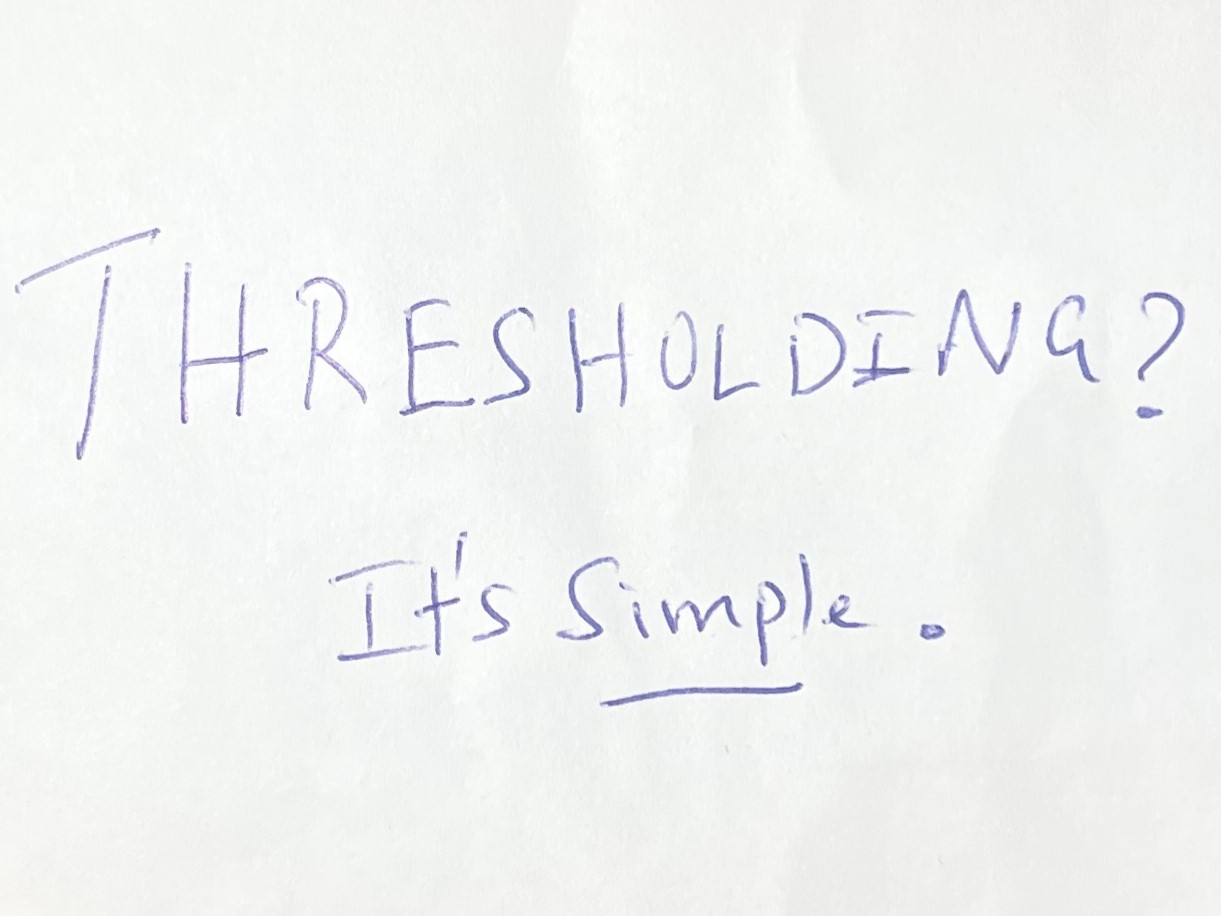 THRESHOLDING?
It's Simple.